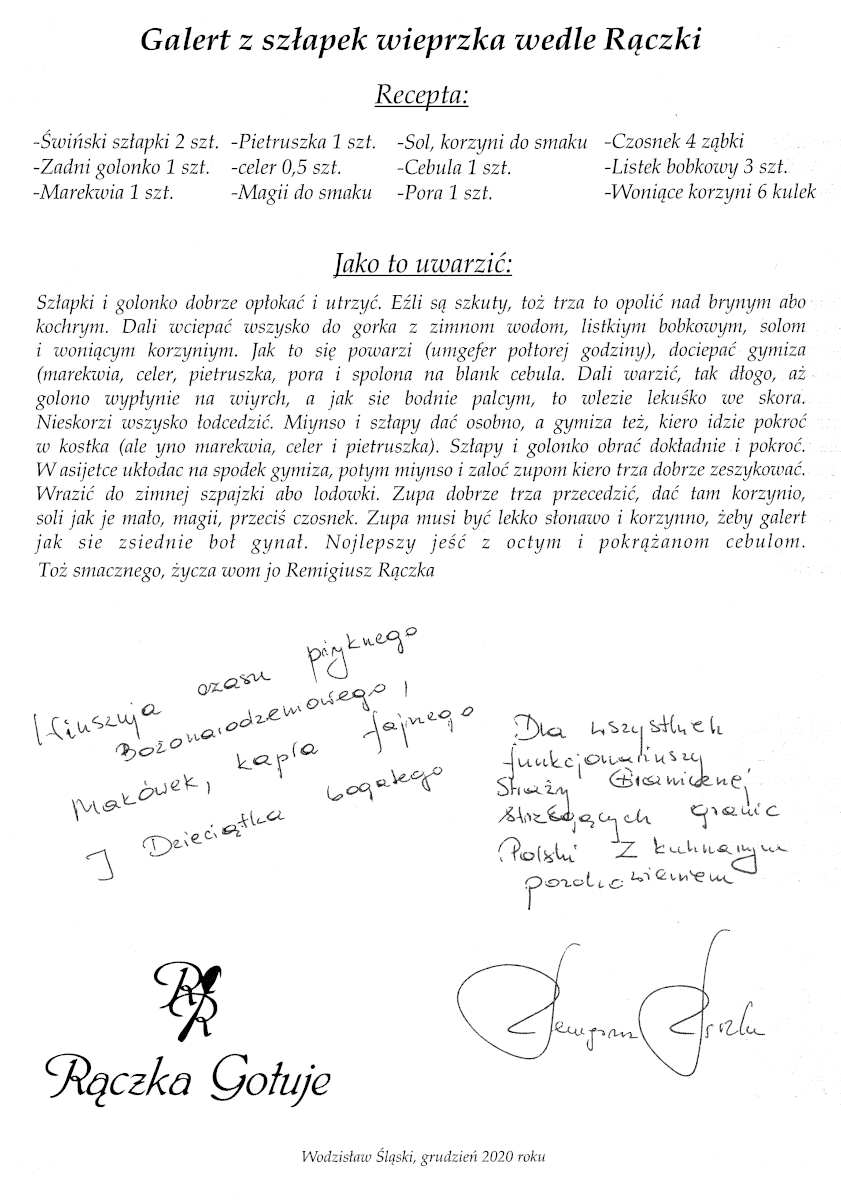 Galert z szłapek wieprzka wedle Rączki
Recepta:
-Świński szłapki 2 szt. -Pietruszka 1 szt. -Sol, korzyni do smaku -Czosnek 4 ząbki
-Zadni golonko 1 szt. -celer 0,5 szt. -Cebula 1 szt. -Listek bobkowy 3 szt.
-Marekwia 1 szt. -Magii do smaku -Pora 1 szt. -Woniące korzyni 6 kulek
Jako to uwarzić:
Szłapki i golonko dobrze opłokać i utrzyć. Eźli są szkuty, toż trza to opolić nad brynym abo
kochrym. Dali wciepać wszysko do gorka z zimnom wodom, listkiym bobkowym, solom
i woniącym korzyniym. Jak to się powarzi (umgefer połtorej godziny), dociepać gymiza
(marekwia, celer, pietruszka, pora i spolona na blank cebula. Dali warzić, tak długo, aż
golono wypłynie na wiyrch, a jak sie bodnie palcym, to wlezie lekuśko we skora.
Nieskorzi wszysko łodcedzić. Miynso i szłapy dać osobno, a gymiza też, kiero idzie pokroć
w kostka (ale yno marekwia, celer i pietruszka). Szłapy i golonko obrać dokładnie i pokroć.
W asijetce ukłodac na spodek gymiza, potym miynso i zaloć zupom kiero trza dobrze zeszykować.
Wrazić do zimnej szpajzki abo lodowki. Zupa dobrze trza przecedzić, dać tam korzynio,
soli jak je mało, magii, przeciś czosnek. Zupa musi być lekko słonawo i korzynno, żeby galert
jak sie zsiednie boł gynał. Nojlepszy jeść z octym i pokrążanom cebulom.
Toż smacznego, życza wom jo Remigiusz Rączka
Winszuja czasu piyknego
Bożonarodzeniowego,
Makówek, kapra fajnego
I Dzieciątka bogatego
Dla wszystkich
funkcjonariuszy
Straży Granicznej
strzegących granic
Polski z kulinarnym
pozdrowieniem
Rączka Gotuje
Wodzisław Śląski, grudzień 2020 roku